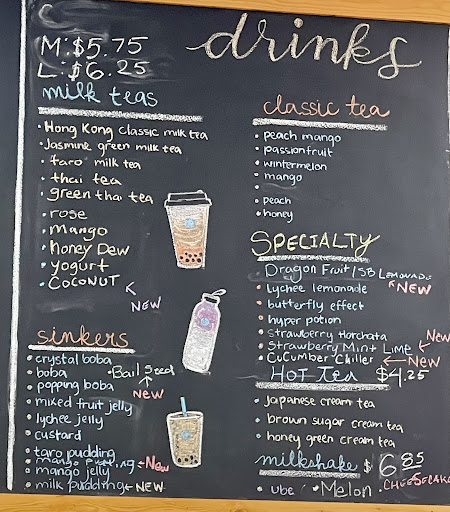 drinks
M: $5.75
L: $6.25
milk teas
• Hong Kong classic milk tea
• Jasmine green milk tea
• taro milk tea
• thai tea
• green thai tea
• rose
• mango
• honey Dew
• yogurt
• COCONUT
NEW
sinkers
• crystal boba
• boba
• Basil seed
NEW
• popping boba
• mixed fruit jelly
• lychee jelly
• custard
• taro pudding
• mango pudding ← NEW
• mango jelly
• milk pudding ← NEW
classic tea
• peach mango
• passionfruit
• wintermelon
- mango
•
• peach
• honey
SPECIALTY
• Dragon Fruit/SB LEMONADE
NEW
• lychee lemonade
• butterfly effect
• hyper potion
• strawberry horchata
• Strawberry Mint Lime ← New
• CUCUMBER CHILLER ← NEW
HOT tea $4.25
• Japanese cream tea
• brown sugar cream tea
• honey green cream tea
milkshake $6.85
• ube • Melon • CHEESECAKE